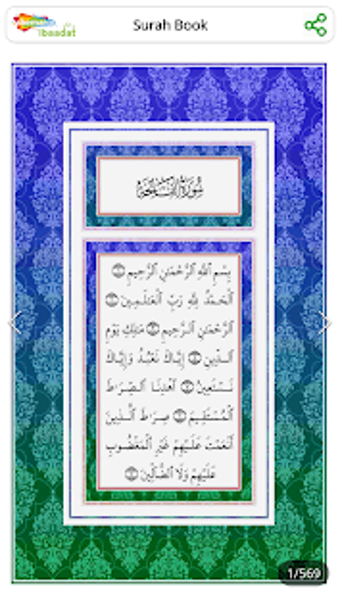 ibaadat
Surah Book
سُورَةُ الْفَاتِحَةِ
بِسْمِ اللَّهِ الرَّحْمَٰنِ الرَّحِيمِ ۝
الْحَمْدُ لِلَّهِ رَبِّ الْعَالَمِينَ ۝
الرَّحْمَٰنِ الرَّحِيمِ ۝ مَالِكِ يَوْمِ
الدِّينِ ۝ إِيَّاكَ نَعْبُدُ وَإِيَّاكَ
نَسْتَعِينُ ۝ اهْدِنَا الصِّرَاطَ
الْمُسْتَقِيمَ ۝ صِرَاطَ الَّذِينَ
أَنْعَمْتَ عَلَيْهِمْ غَيْرِ الْمَغْضُوبِ
عَلَيْهِمْ وَلَا الضَّالِّينَ ۝
1/569